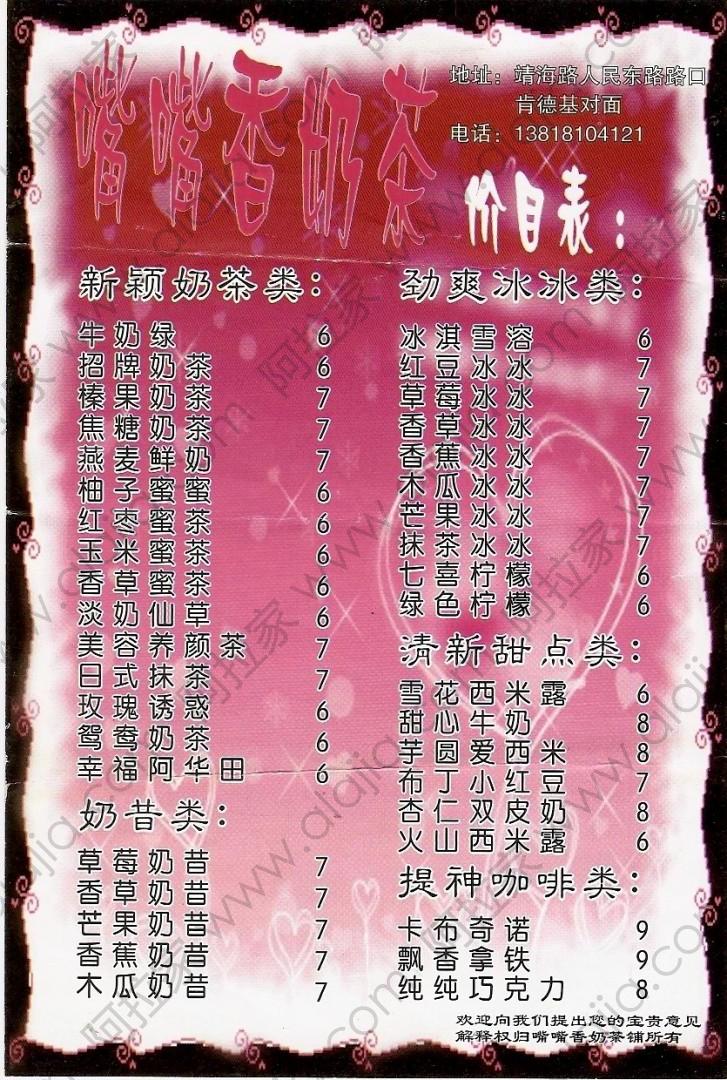 嘴嘴香奶茶
地址：靖海路人民东路路口
肯德基对面
电话：13818104121
价目表：
新颖奶茶类：
牛奶绿 6
招牌奶茶 6
榛果奶茶 7
焦糖奶茶 7
燕麦鲜奶 7
柚子蜜蜜 6
红枣蜜茶 6
玉米蜜茶 6
香草蜜茶 6
淡奶仙草 6
美容养颜茶 7
日式抹茶 7
玫瑰诱惑 6
鸳鸯奶茶 6
幸福阿华田 6
奶昔类：
草莓奶昔 7
香草奶昔 7
芒果奶昔 7
香蕉奶昔 7
木瓜奶昔 7
劲爽冰冰类：
冰淇雪溶 6
红豆冰冰 7
草莓冰冰 7
香草冰冰 7
香蕉冰冰 7
木瓜冰冰 7
芒果冰冰 7
抹茶冰冰 7
七喜柠檬 6
绿色柠檬 6
清新甜点类：
雪花西米露 6
甜心牛奶 8
芋圆爱西米 8
布丁小红豆 7
杏仁双皮奶 8
火山西米露 6
提神咖啡类：
卡布奇诺 9
飘香拿铁 9
纯纯巧克力 8
欢迎向我们提出您的宝贵意见
解释权归嘴嘴香奶茶铺所有
阿拉家 www.alajia.com